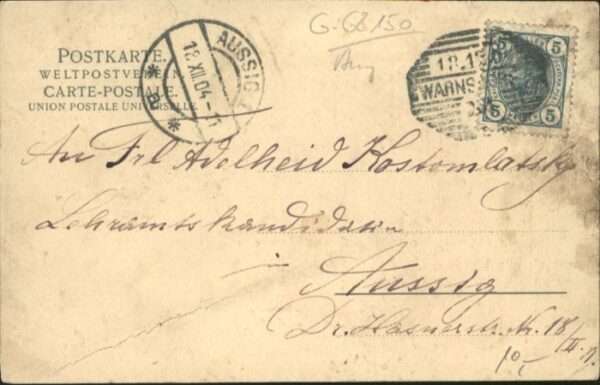 G-G 150
POSTKARTE.
WELTPOSTVEREIN.
CARTE-POSTALE.
UNION POSTALE UNIVERSELLE.
AUSSIG
18 XII 04 - 11
* a *
18.1
WARNS
5 5
5 5
An Frl Adelheid Kostomlatsky
Lehramtskandidatin
in
Aussig
Dr. Hasnerstr. Nr. 18/II. 
10,-